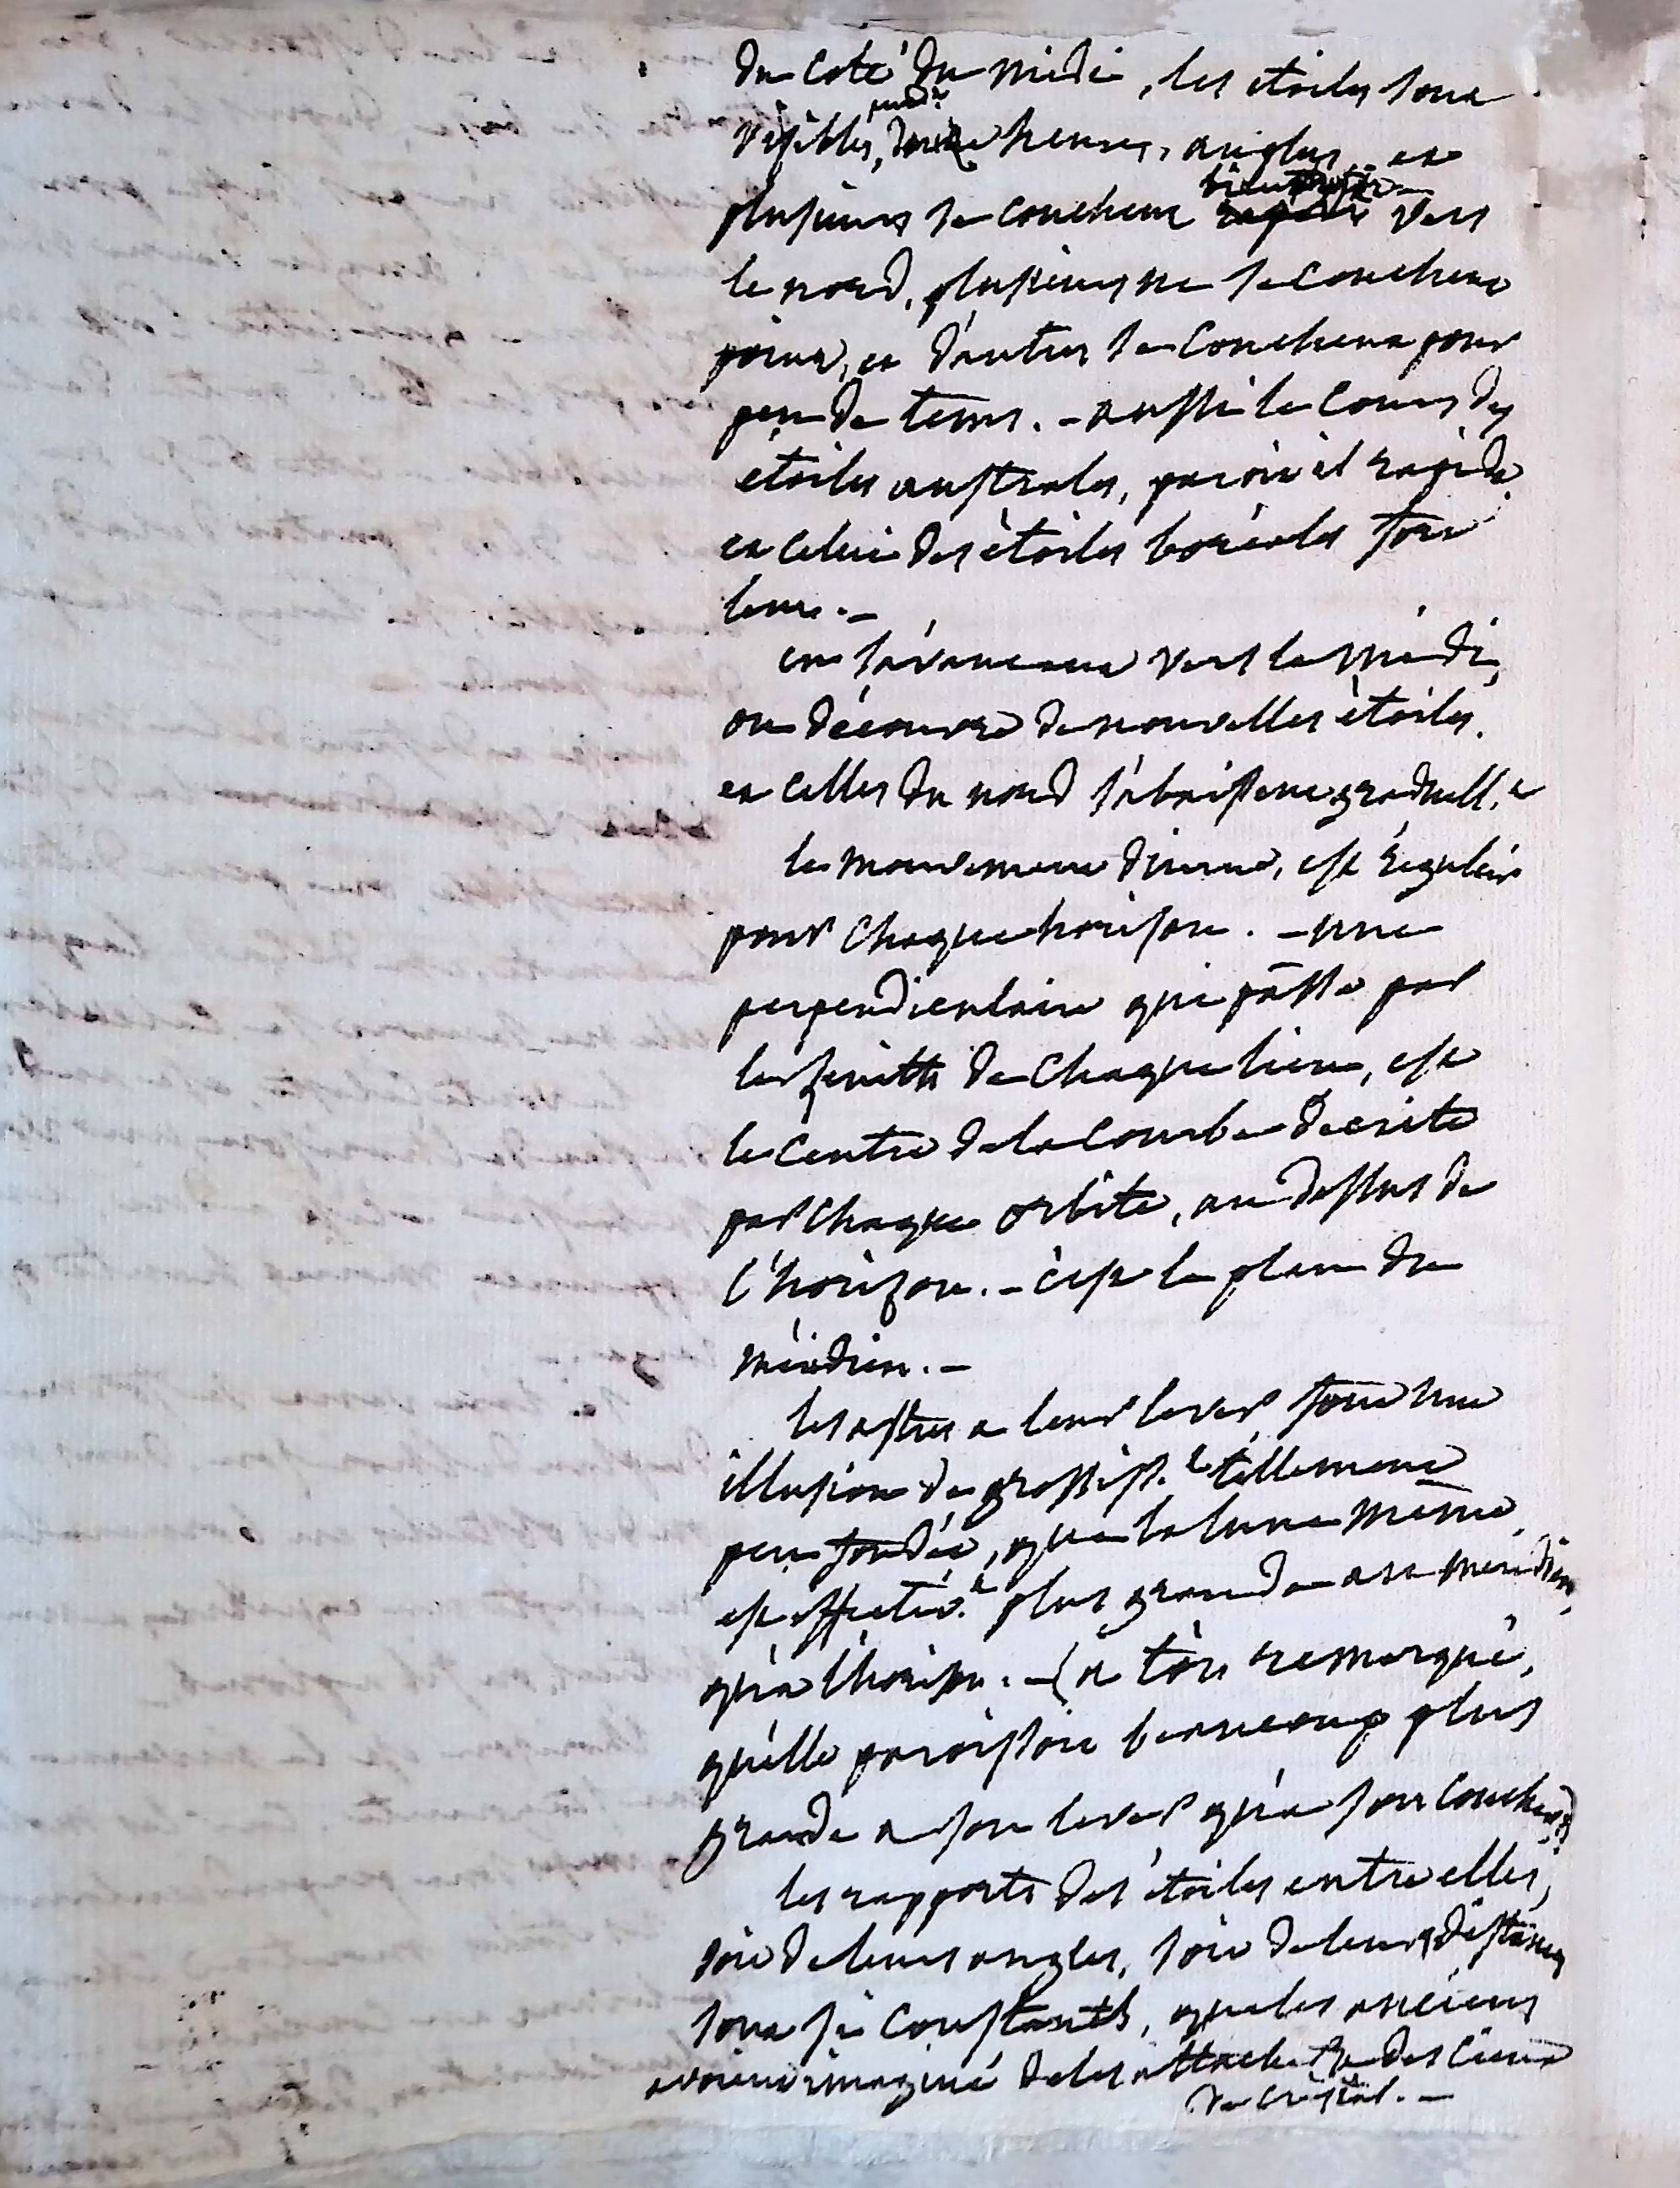 du coté du midi, les etoiles sont
visibles, douze heures, au plus, et
plusieurs se couchent bientot vers
le nord, plusieurs ne se couchent
point, et d'autres se couchent pour
peu de tems. - aussi le cours des
étoiles australes, paroit il rapide
et celui des étoiles boréales fort
lent. -
en s'avançant vers le midi,
on découvre de nouvelles étoiles.
et celles du nord s'abaissent graduell.t
le mouvement diurne, est régulier
pour chaque horison. - une
perpendiculaire qui passe par
les zenith de chaque lieu, est
le centre de la courbe décrite
par chaque orbite, au dessus de
l'horizon. - c'est le plan du
méridien. -
les astres a leur lever font une
illusion de grossiss.t tellement
peu fondée, que la lune même,
est effectiv.t plus grande au meridien,
qu'a l'horison. - (a t'on remarqué,
qu'elle paroissoit beaucoup plus
grande a son lever qu'a son coucher?)
les rapports des étoiles entre elles,
soit de leurs angles, soit de leurs distances
sont si constants, que les anciens
avoient imaginé de les attacher a des cieux
de cristal. -